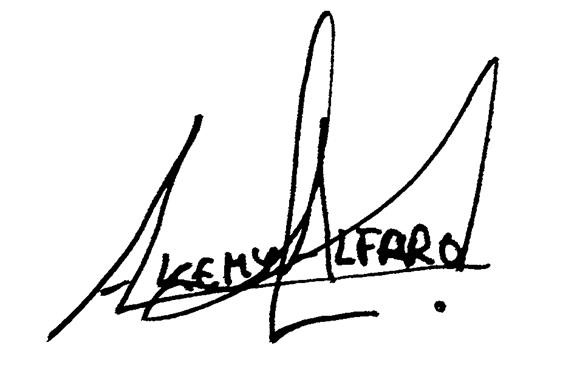 ALKEMY ALFARO